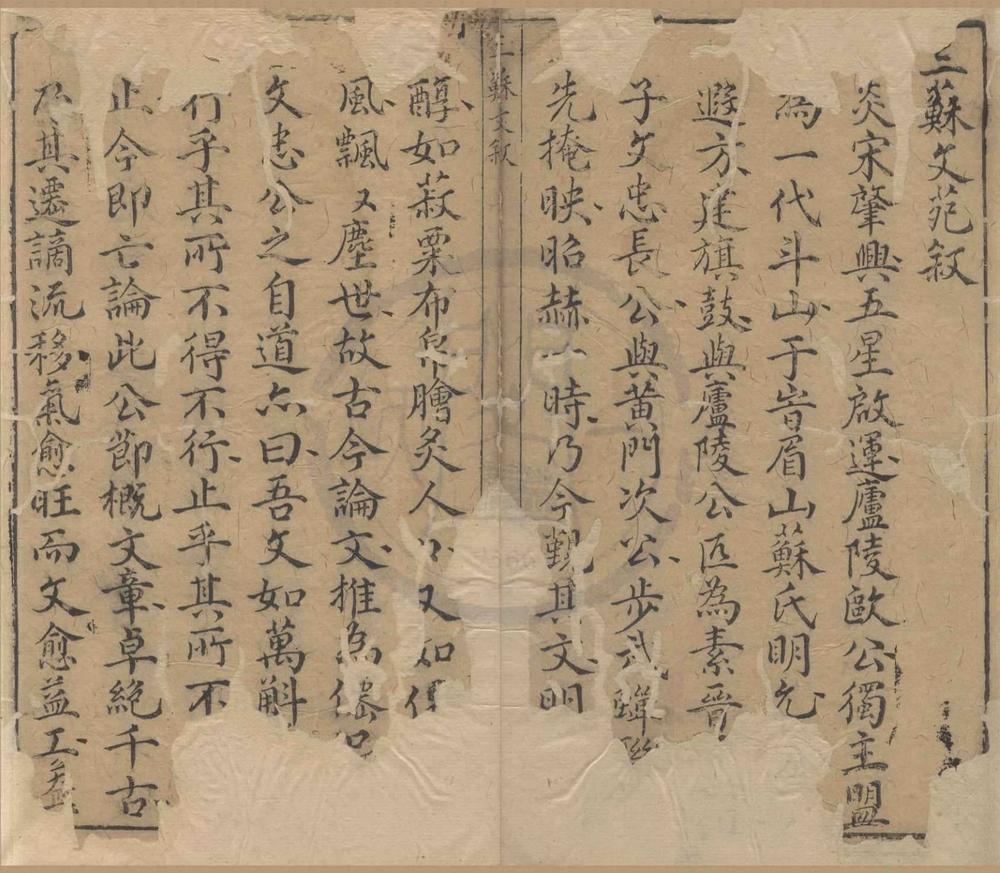 三蘇文苑敘
炎宋肇興五星啟運廬陵歐公獨主盟
為一代斗山于皆眉山蘇氏明允
遐方建旗鼓與廬陵公匹為素晉
子文忠長公與黃門次公步武
先掩映昭赫一時乃今觀其文明
三蘇文敘
醇如菽粟布帛膾炙人又如
風飄又塵世故古今論文推為
文忠公之自道亦曰吾文如萬斛
行乎其所不得不行止乎其所不
止今即亡論此公節概文章卓絕千古
其遷謫流移氣愈旺而文愈益工益